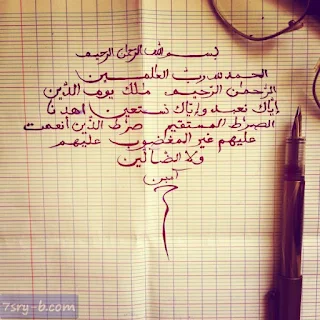 بسم الله الرحمن الرحيم
الحمد لله ربّ العلمين
الرحمن الرحيم ملك يوم الدّين
إيّاك نعبد وإيّاك نستعين اهدنا
الصراط المستقيم صراط الذّين أنعمت
عليهم غير المغضوب عليهم
ولا الضالّين
آمين
7sry-b.com